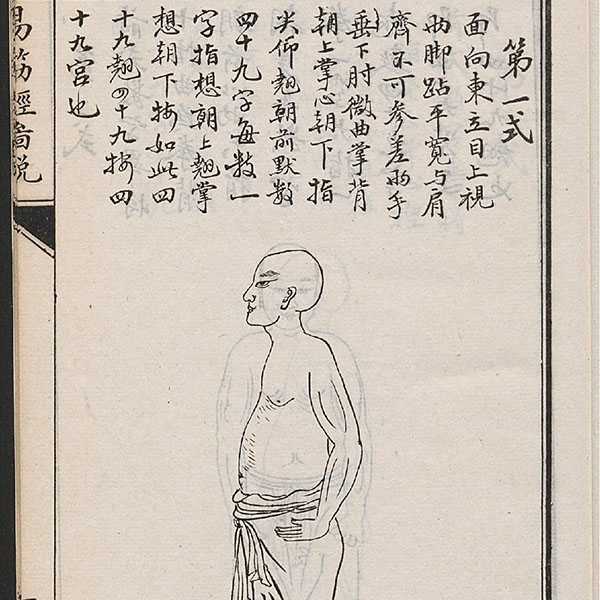 第一式
面向東立目上視
兩脚跕平寬与肩
齊不可参差兩手
垂下肘微曲掌背
朝上掌心朝下指
尖仰翹朝前默数
四十九字每数一
字指想朝上翹掌
想朝下按如此四
十九翹四十九按四
十九宫也
易筋經啚説